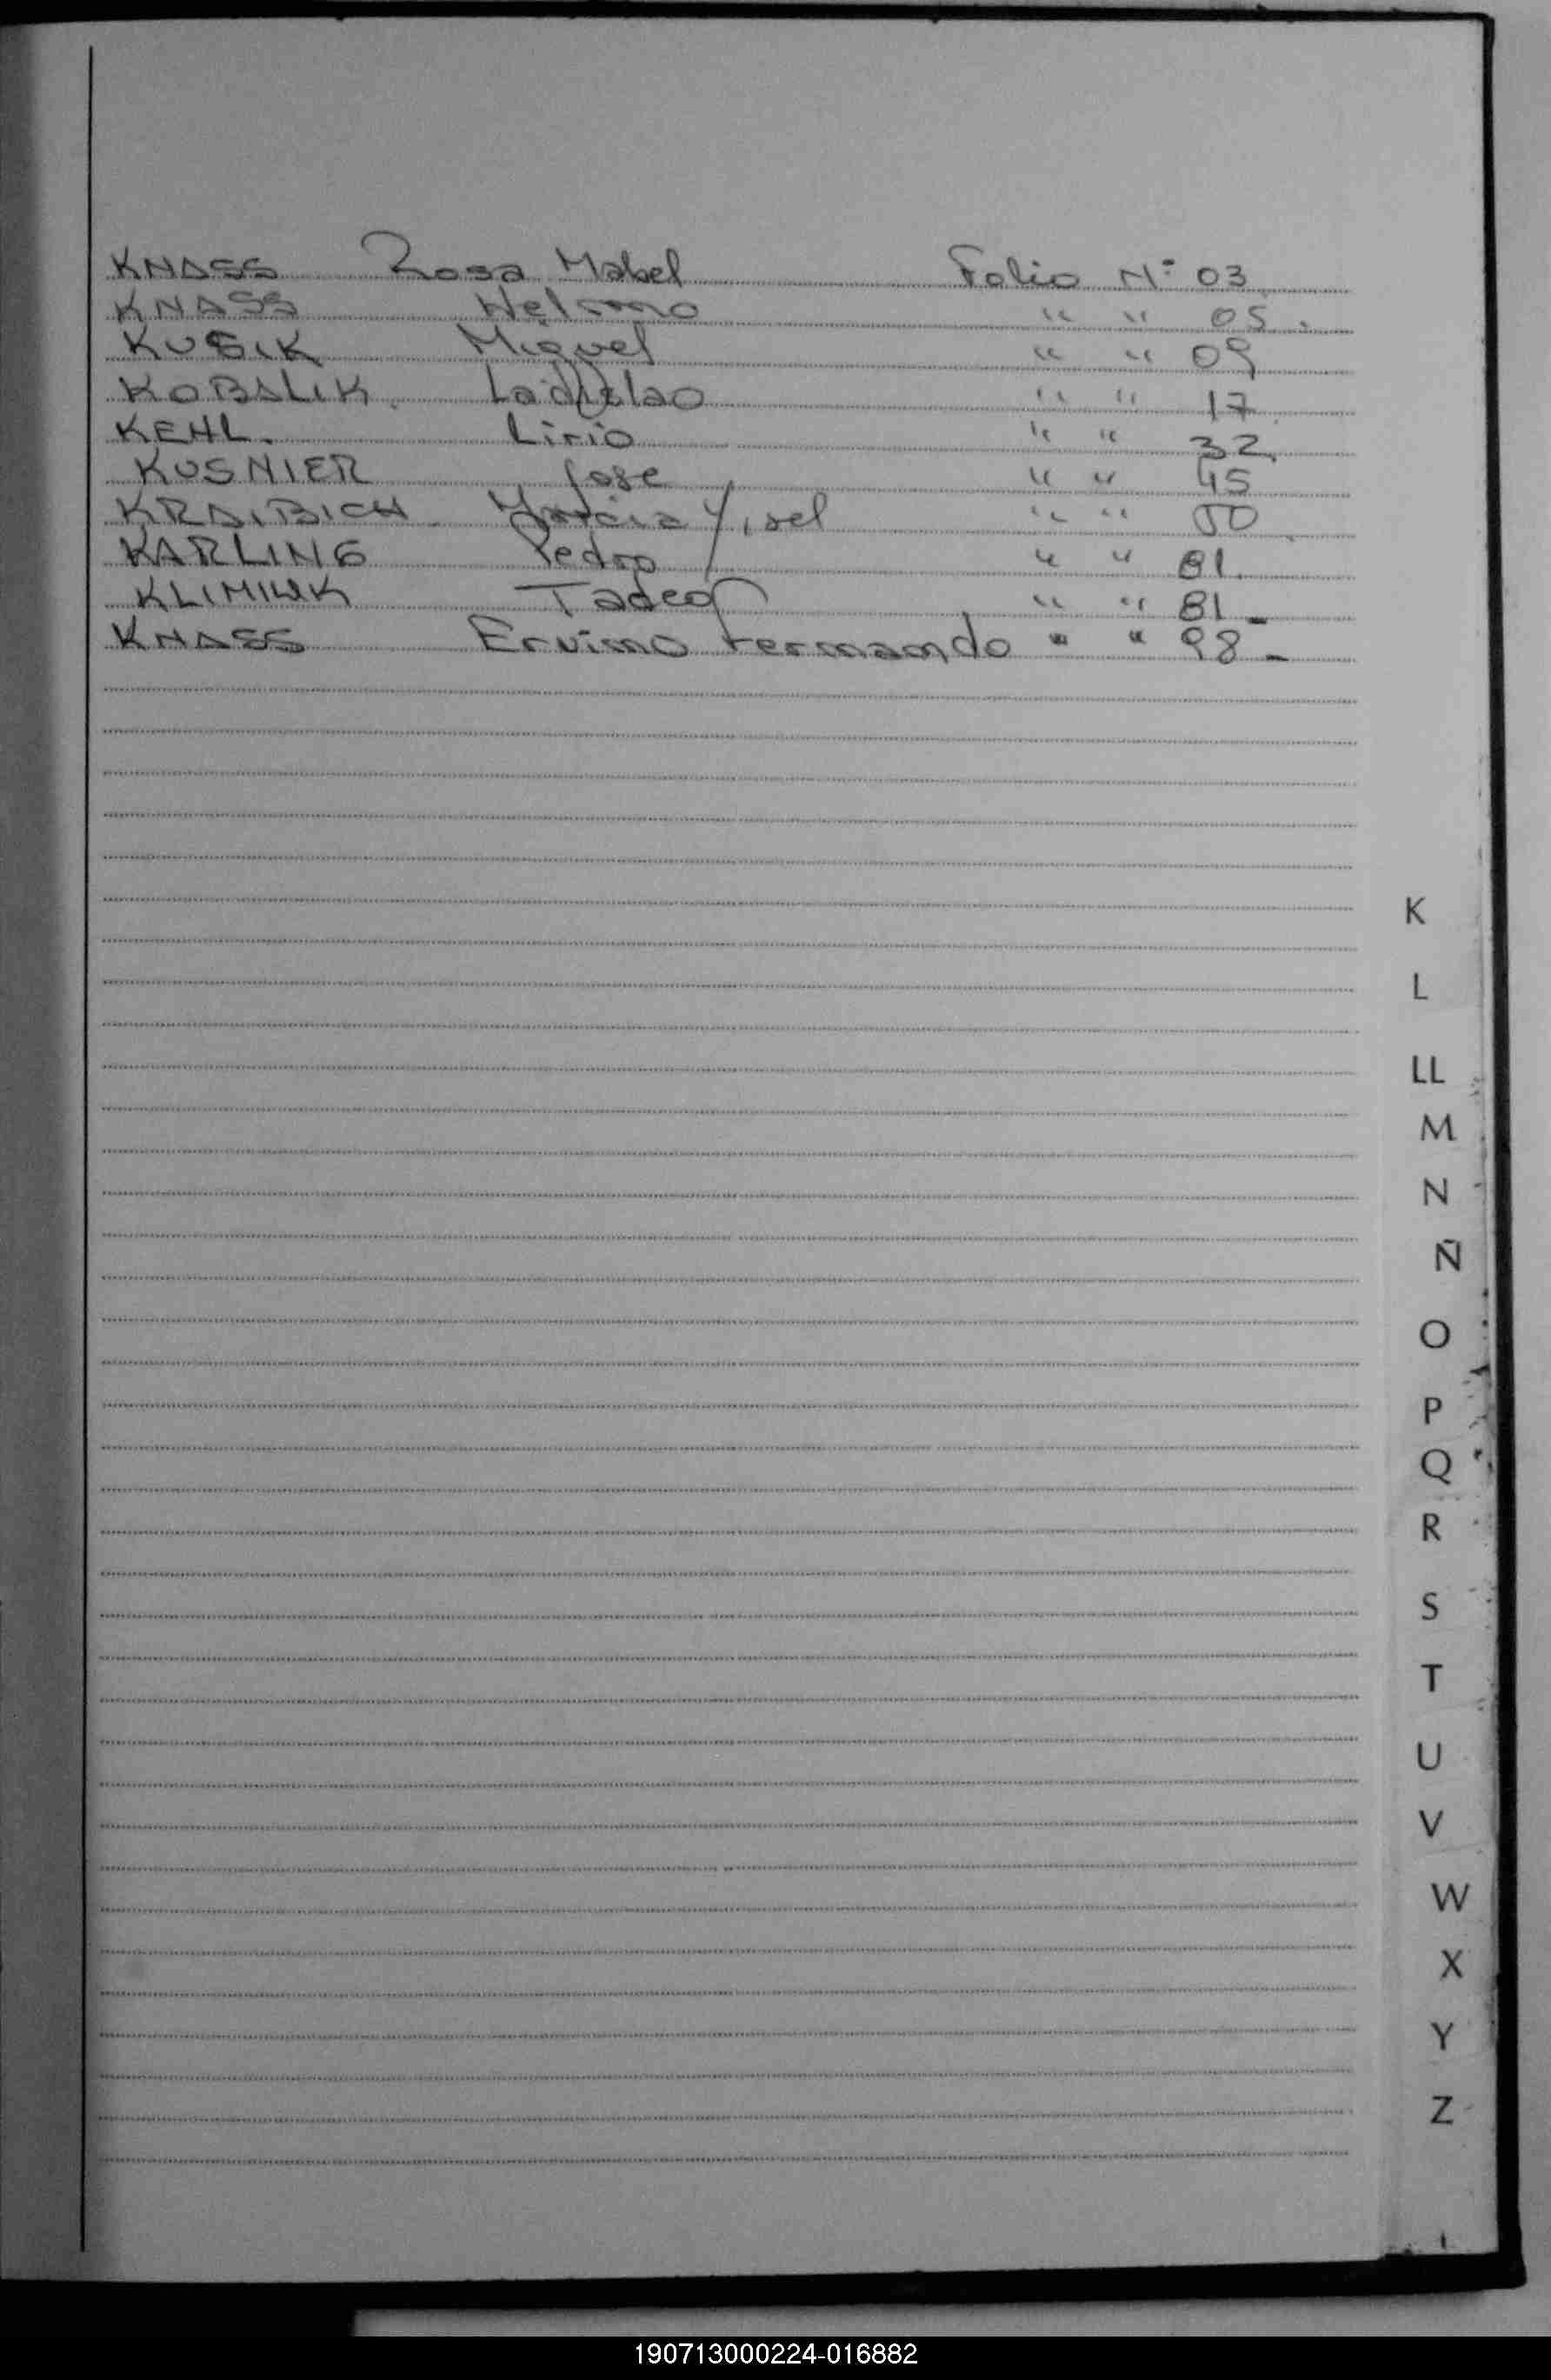 KNASS Rosa Mabel Folio Nº 03
KNASS Nelsno " " 05.
KUSIK Miguel " " 09
KOBALIK. Ladislao " " 17
KEHL. Lirio " " 32.
KUSNIER Jose " " 45
KRAIBICH Yisel " " 50
KARLING Pedro " " 81
KLIMIUK Tadeo " " 81_
KNASS Ervino Fernando " " 98_
K
L
LL
M
N
Ñ
O
P
Q
R
S
T
U
V
W
X
Y
Z
190713000224-016882